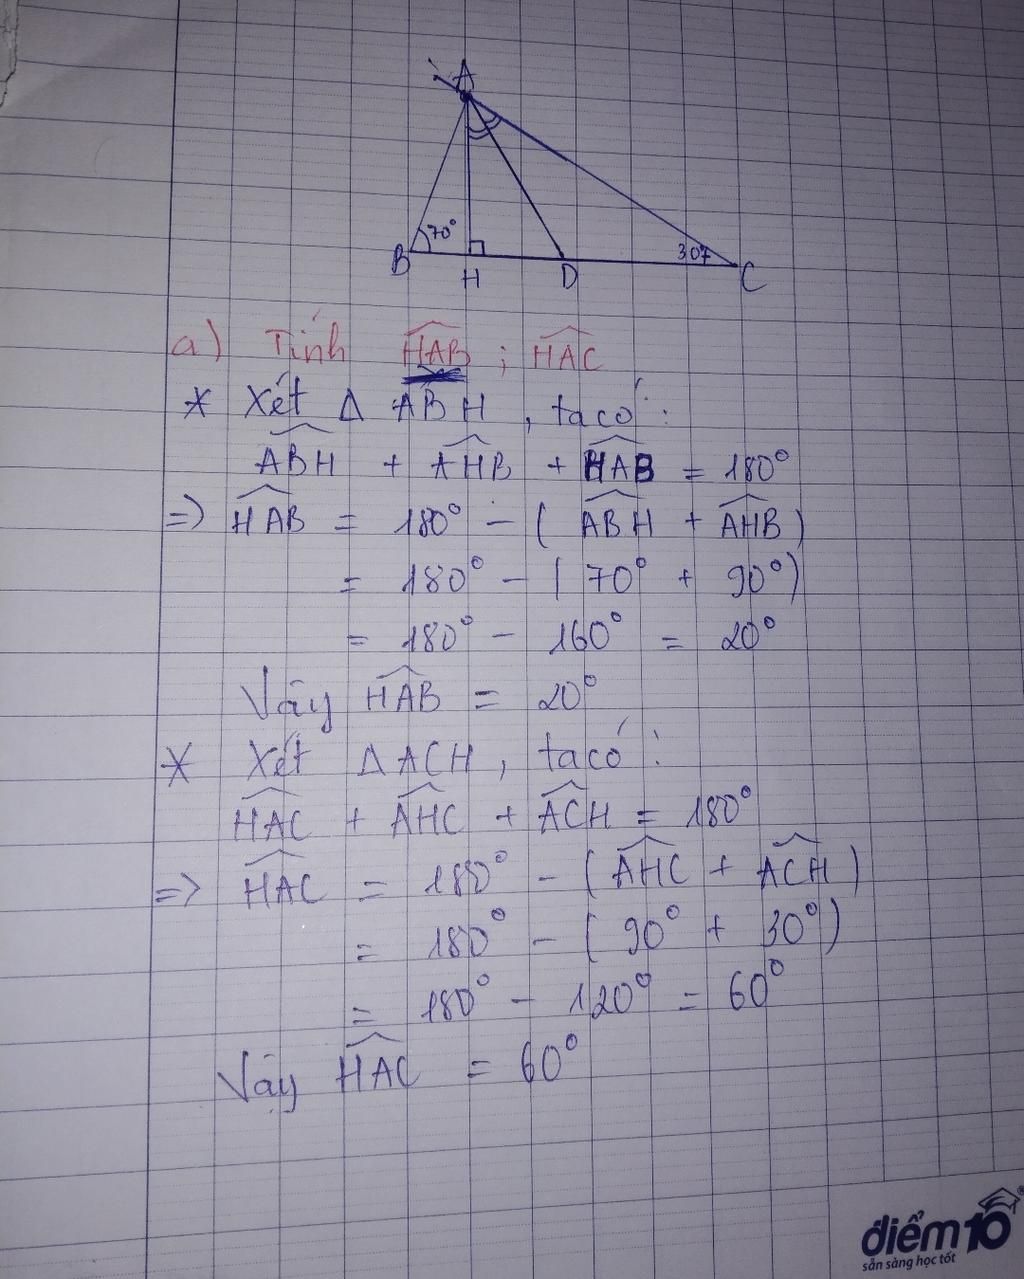 A
70°
30°
B
H
D
C
a) Tính HAB ; HAC
* Xét Δ ABH , ta có :
ABH + AHB + HAB = 180°
=> HAB = 180° - ( ABH + AHB )
= 180° - ( 70° + 90° )
= 180° - 160° = 20°
Vậy HAB = 20°
* Xét Δ ACH , ta có :
HAC + AHC + ACH = 180°
=> HAC = 180° - ( AHC + ACH )
= 180° - ( 90° + 30° )
= 180° - 120° = 60°
Vậy HAC = 60°
điểm 10
sẵn sàng học tốt